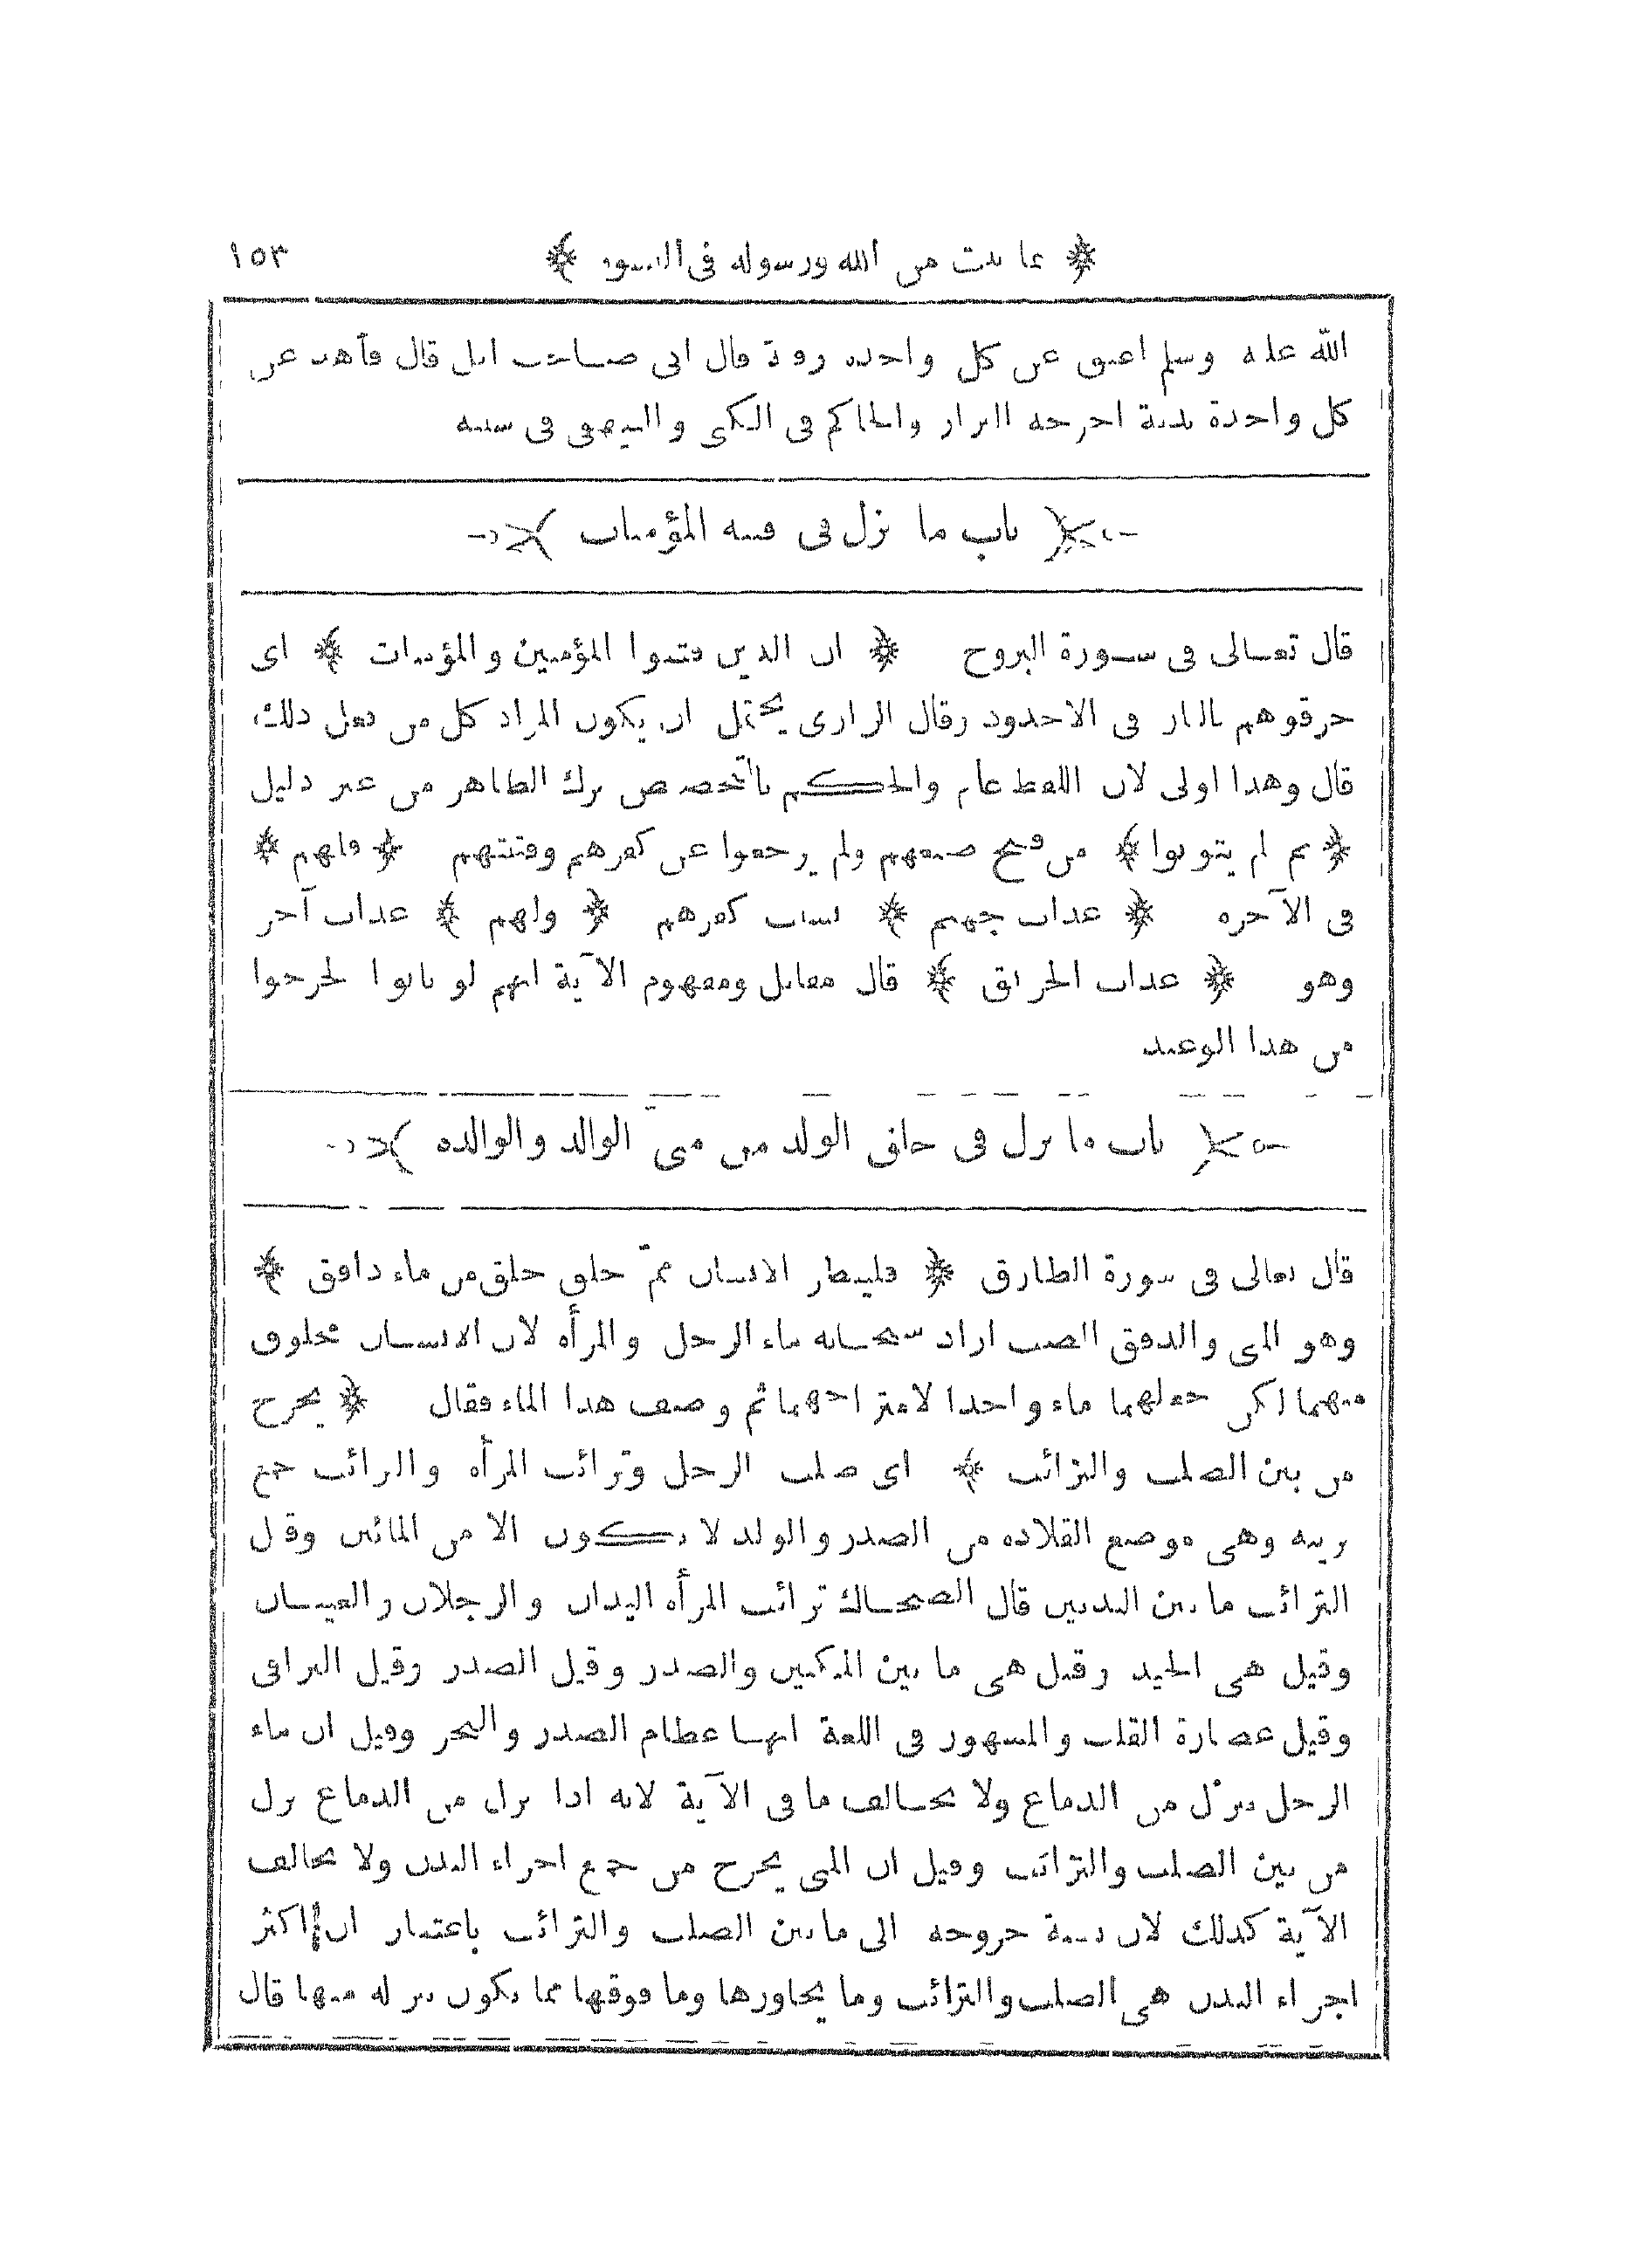 ﴿ بما ثبت من الله ورسوله في النسوة ﴾ ١٥٣
الله عليه وسلم اعتق عن كل واحدة رقبة قال انى صاحب ابل قال فأهد عن
كل واحدة بدنة اخرجه البزار والحاكم فى الكنى والبيهقى فى سننه
﴿ باب ما نزل فى فتنة المؤمنات ﴾
قال تعالى فى سورة البروج ﴿ ان الذين فتنوا المؤمنين والمؤمنات ﴾ اى
حرقوهم بالنار فى الاخدود وقال الرازى يحتمل ان يكون المراد كل من فعل ذلك
قال وهذا اولى لان اللفظ عام والحكم بالتخصيص ترك الظاهر من غير دليل
﴿ ثم لم يتوبوا ﴾ من قبيح صنعهم ولم يرجعوا عن كفرهم وفتنتهم ﴿ فلهم ﴾
فى الآخرة ﴿ عذاب جهنم ﴾ بسبب كفرهم ﴿ ولهم ﴾ عذاب آخر
وهو ﴿ عذاب الحريق ﴾ قال مقاتل ومفهوم الآية انهم لو تابوا لخرجوا
من هذا الوعيد
﴿ باب ما نزل فى خلق الولد من منىّ الوالد والوالدة ﴾
قال تعالى فى سورة الطارق ﴿ فلينظر الانسان ممّ خلق خلق من ماء دافق ﴾
وهو المنى والدفق الصب اراد سبحانه ماء الرجل والمرأة لان الانسان مخلوق
منهما لكن جعلهما ماء واحدا لامتزاجهما ثم وصف هذا الماء فقال ﴿ يخرج
من بين الصلب والترائب ﴾ اى صلب الرجل وترائب المرأة والترائب جمع
تريبة وهى موضع القلادة من الصدر والولد لا يكون الا من المائين وقيل
الترائب ما بين الثديين قال الضحاك ترائب المرأة اليدان والرجلان والعينان
وقيل هى الجيد وقيل هى ما بين المنكبين والصدر وقيل الصدر وقيل التراقى
وقيل عصارة القلب والمشهور فى اللغة انها عظام الصدر والنحر وقيل ان ماء
الرجل ينزل من الدماغ ولا يخالف ما فى الآية لانه اذا نزل من الدماغ نزل
من بين الصلب والترائب وقيل ان المنى يخرج من جميع اجزاء البدن ولا يخالف
الآية كذلك لان نسبة خروجه الى ما بين الصلب والترائب باعتبار ان اكثر
اجزاء البدن هى الصلب والترائب وما يجاورها وما فوقها مما يكون تنزله منها قال